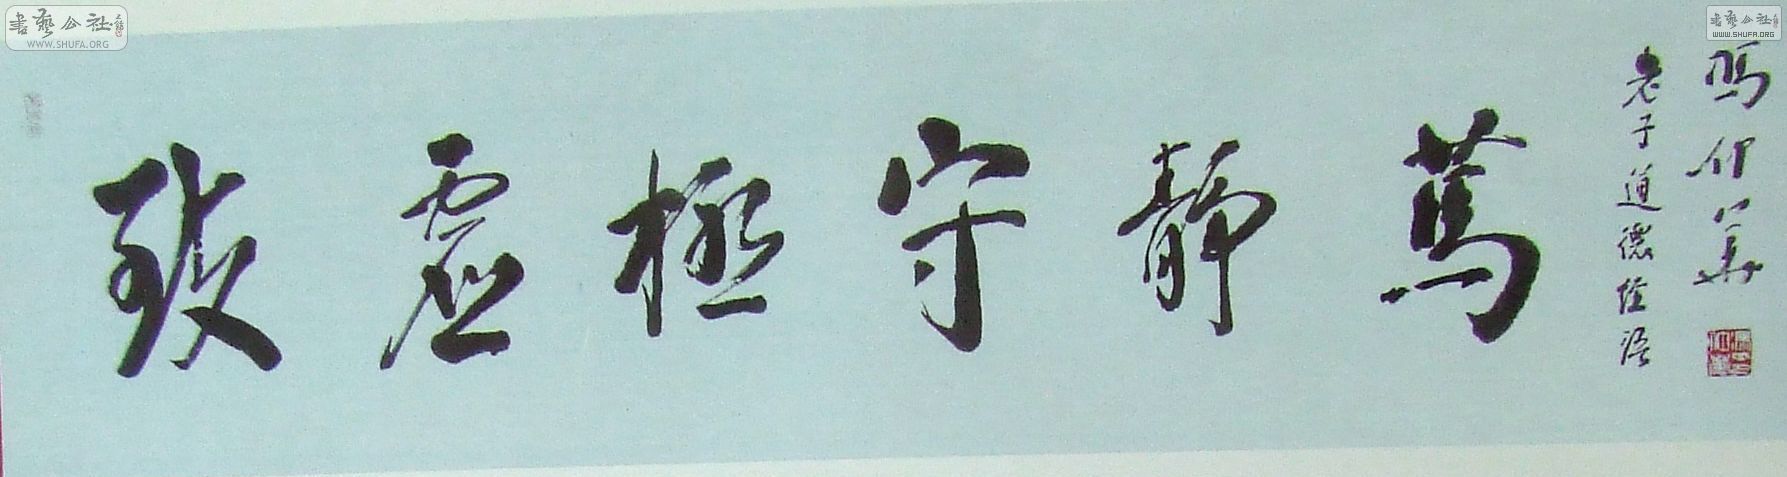 書藝公社
WWW.SHUFA.ORG
書藝公社
WWW.SHUFA.ORG
致虛極守靜篤
老子道德经语